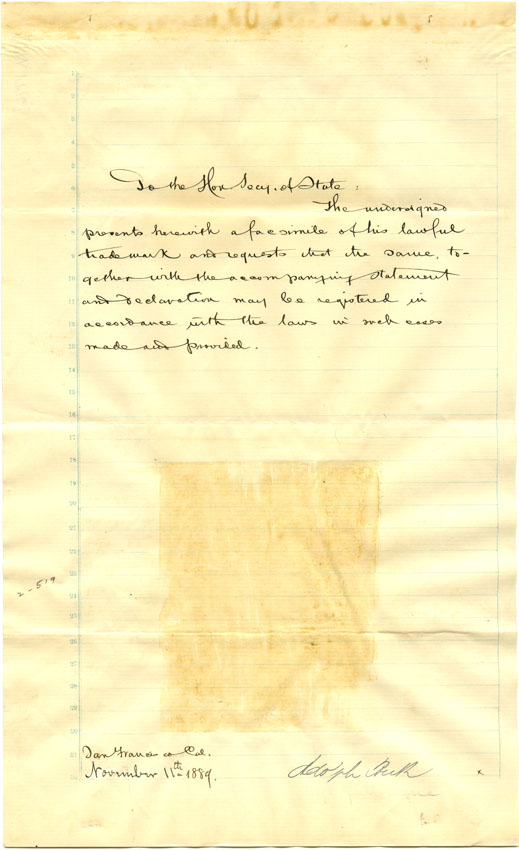 To the Hon Secy. of State:
The undersigned
presents herewith a facsimile of his lawful
trademark and requests that the same, to-
gether with the accompanying statement
and declaration may be registered in
accordance with the laws in such cases
made and provided.
2-519
San Francisco Cal.
November 11th 1889.
Adolph
x